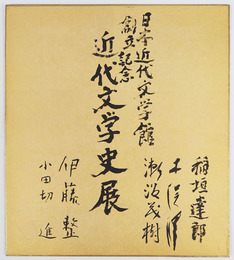 日本近代文学館
創立記念
近代文学史展
稲垣達郎
瀬沼茂樹
伊藤整
小田切進